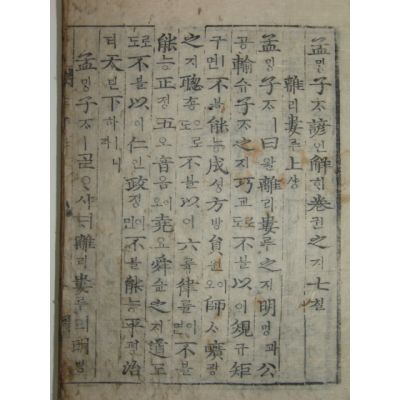 孟ᄆᆡᆼ子ᄌᆞ諺언解ᄒᆡ卷권之지七칠
離리婁루上샹
孟ᄆᆡᆼ子ᄌᆞㅣ曰왈離리婁루之지明명과公
공輸슈子ᄌᆞ之지巧교로도不불以이規규矩
구면不불能능成셩方방員원이오師ᄉᆞ曠광
之지聰총으로도不불以이六륙律률이면不불
能능正졍五오音음이오堯요舜슌之지道도
로도不불以이仁인政졍이면不불能능平평治
티天텬下하ㅣ니
孟ᄆᆡᆼ子ᄌᆞㅣᄀᆞᆯᄋᆞ샤ᄃᆡ離리婁루의明명